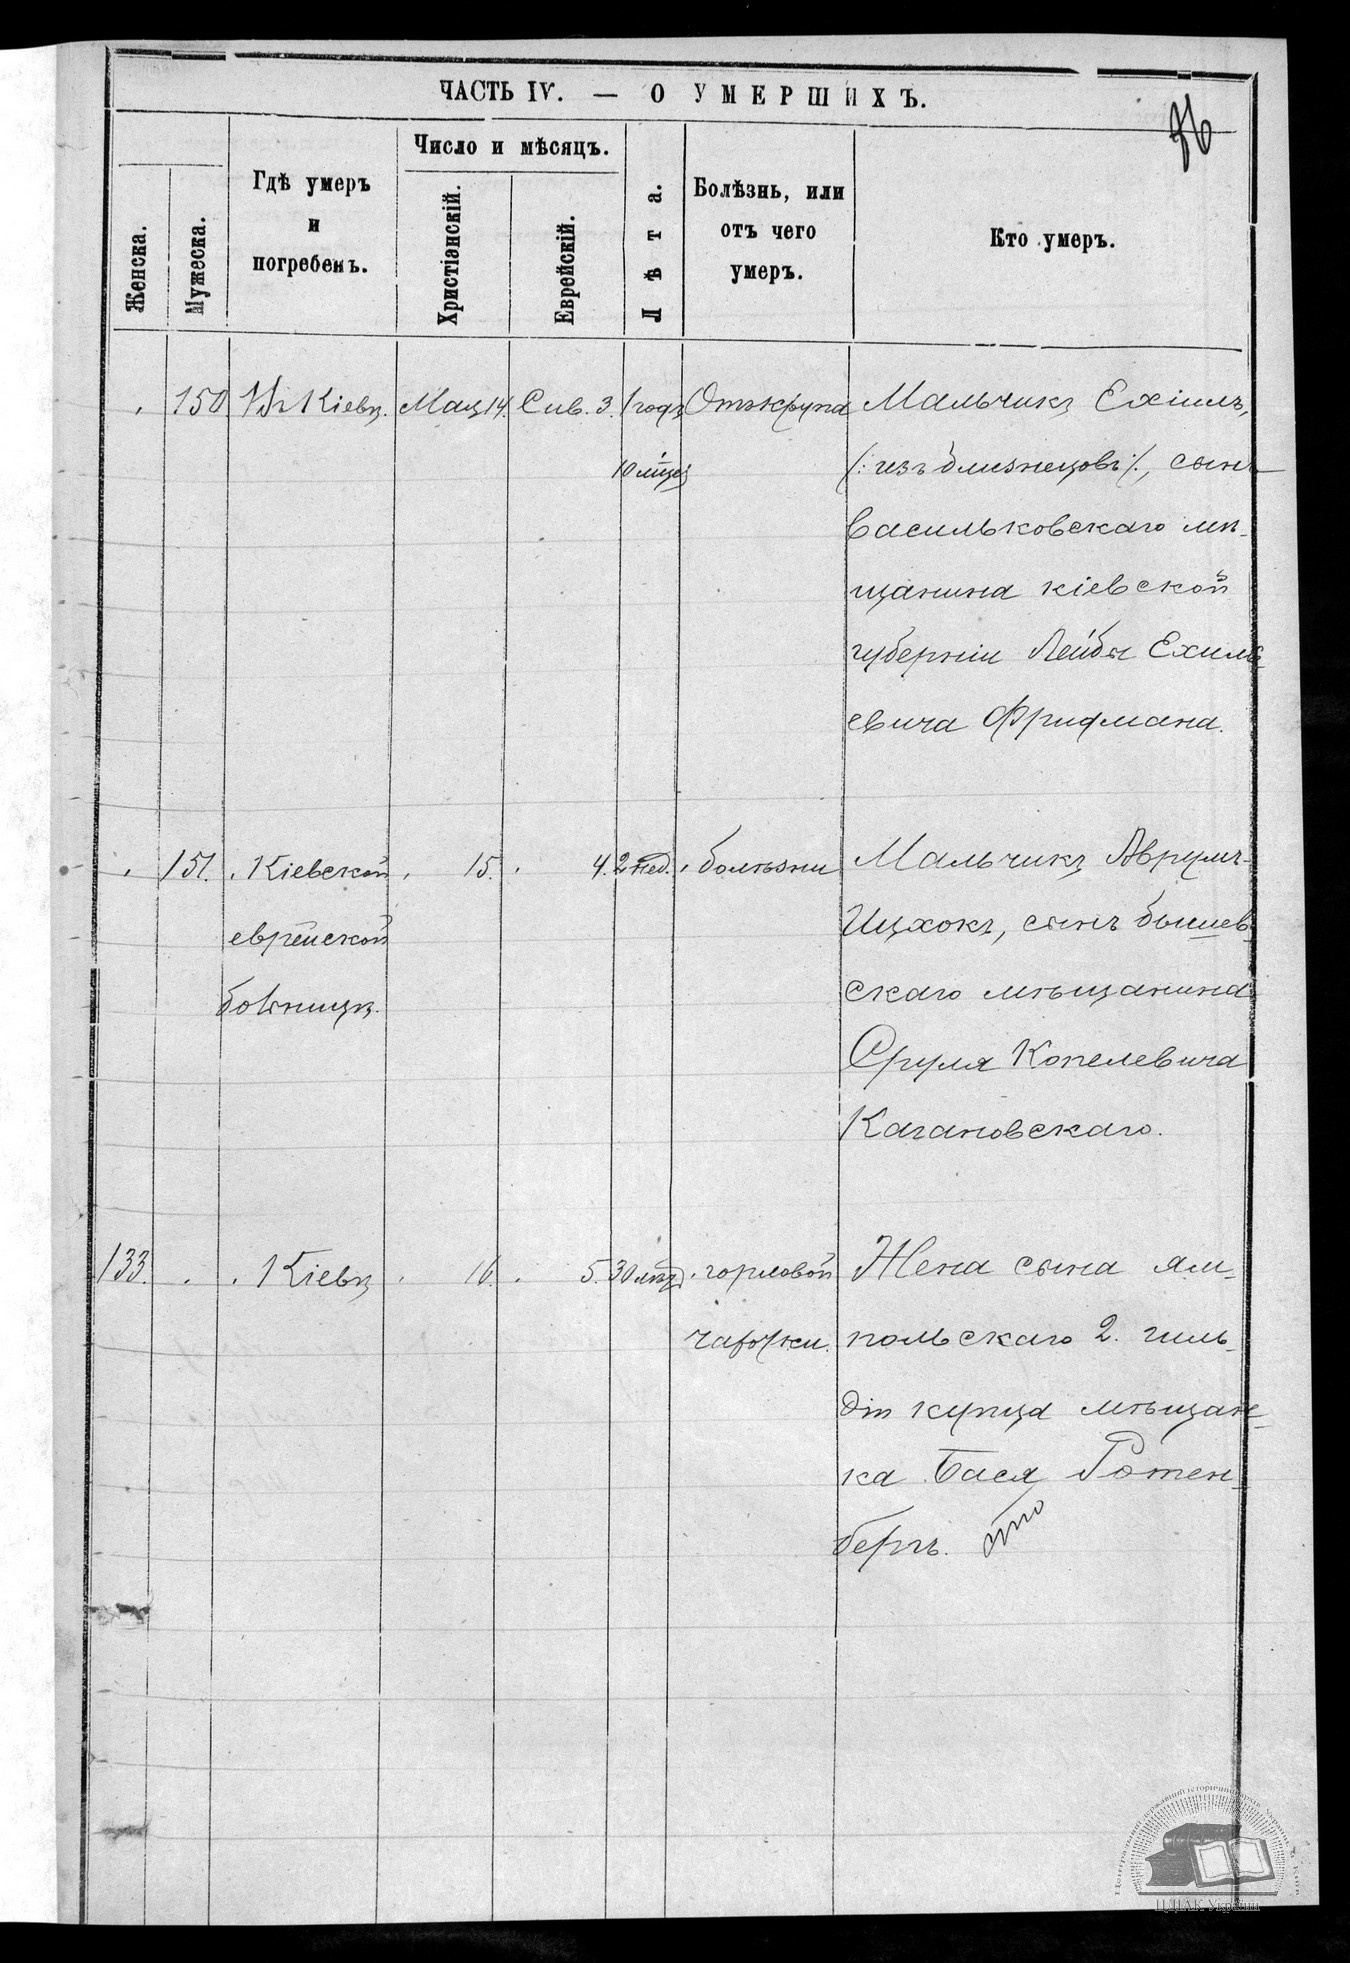 ЧАСТЬ IV. — О УМЕРШИХЪ.
Женска.
Мужеска.
Гдѣ умеръ
и
погребенъ.
Число и мѣсяцъ.
Христіанскій.
Еврейскій.
Лѣта.
Болѣзнь, или
отъ чего
умеръ.
Кто умеръ.
150 Въ Кіевѣ. Мая 14. Сив. 3. 1 годъ Отъ крупа Мальчикъ Ехіилъ,
10 мѣцеᷱ /:изъ близнецовъ:/, сынъ
Васильковскаго мѣ-
щанина кіевской
губерніи Лейбы Ехиль-
евича Фридмана.
151. Кіевской 15. 4. 2 нед. болѣзни Мальчикъ Аврумъ-
еврейской Ицхокъ, сынъ бышев-
больницѣ. скаго мѣщанина
Сруля Копелевича
Кагановскаго.
133. Кіевѣ 16. 5. 30 лѣтъ горловой Жена сына ям-
чахотки. польскаго 2. гиль-
діи купца мѣщан-
ка Бася Ротен-
бергъ.
ЦДІАК України